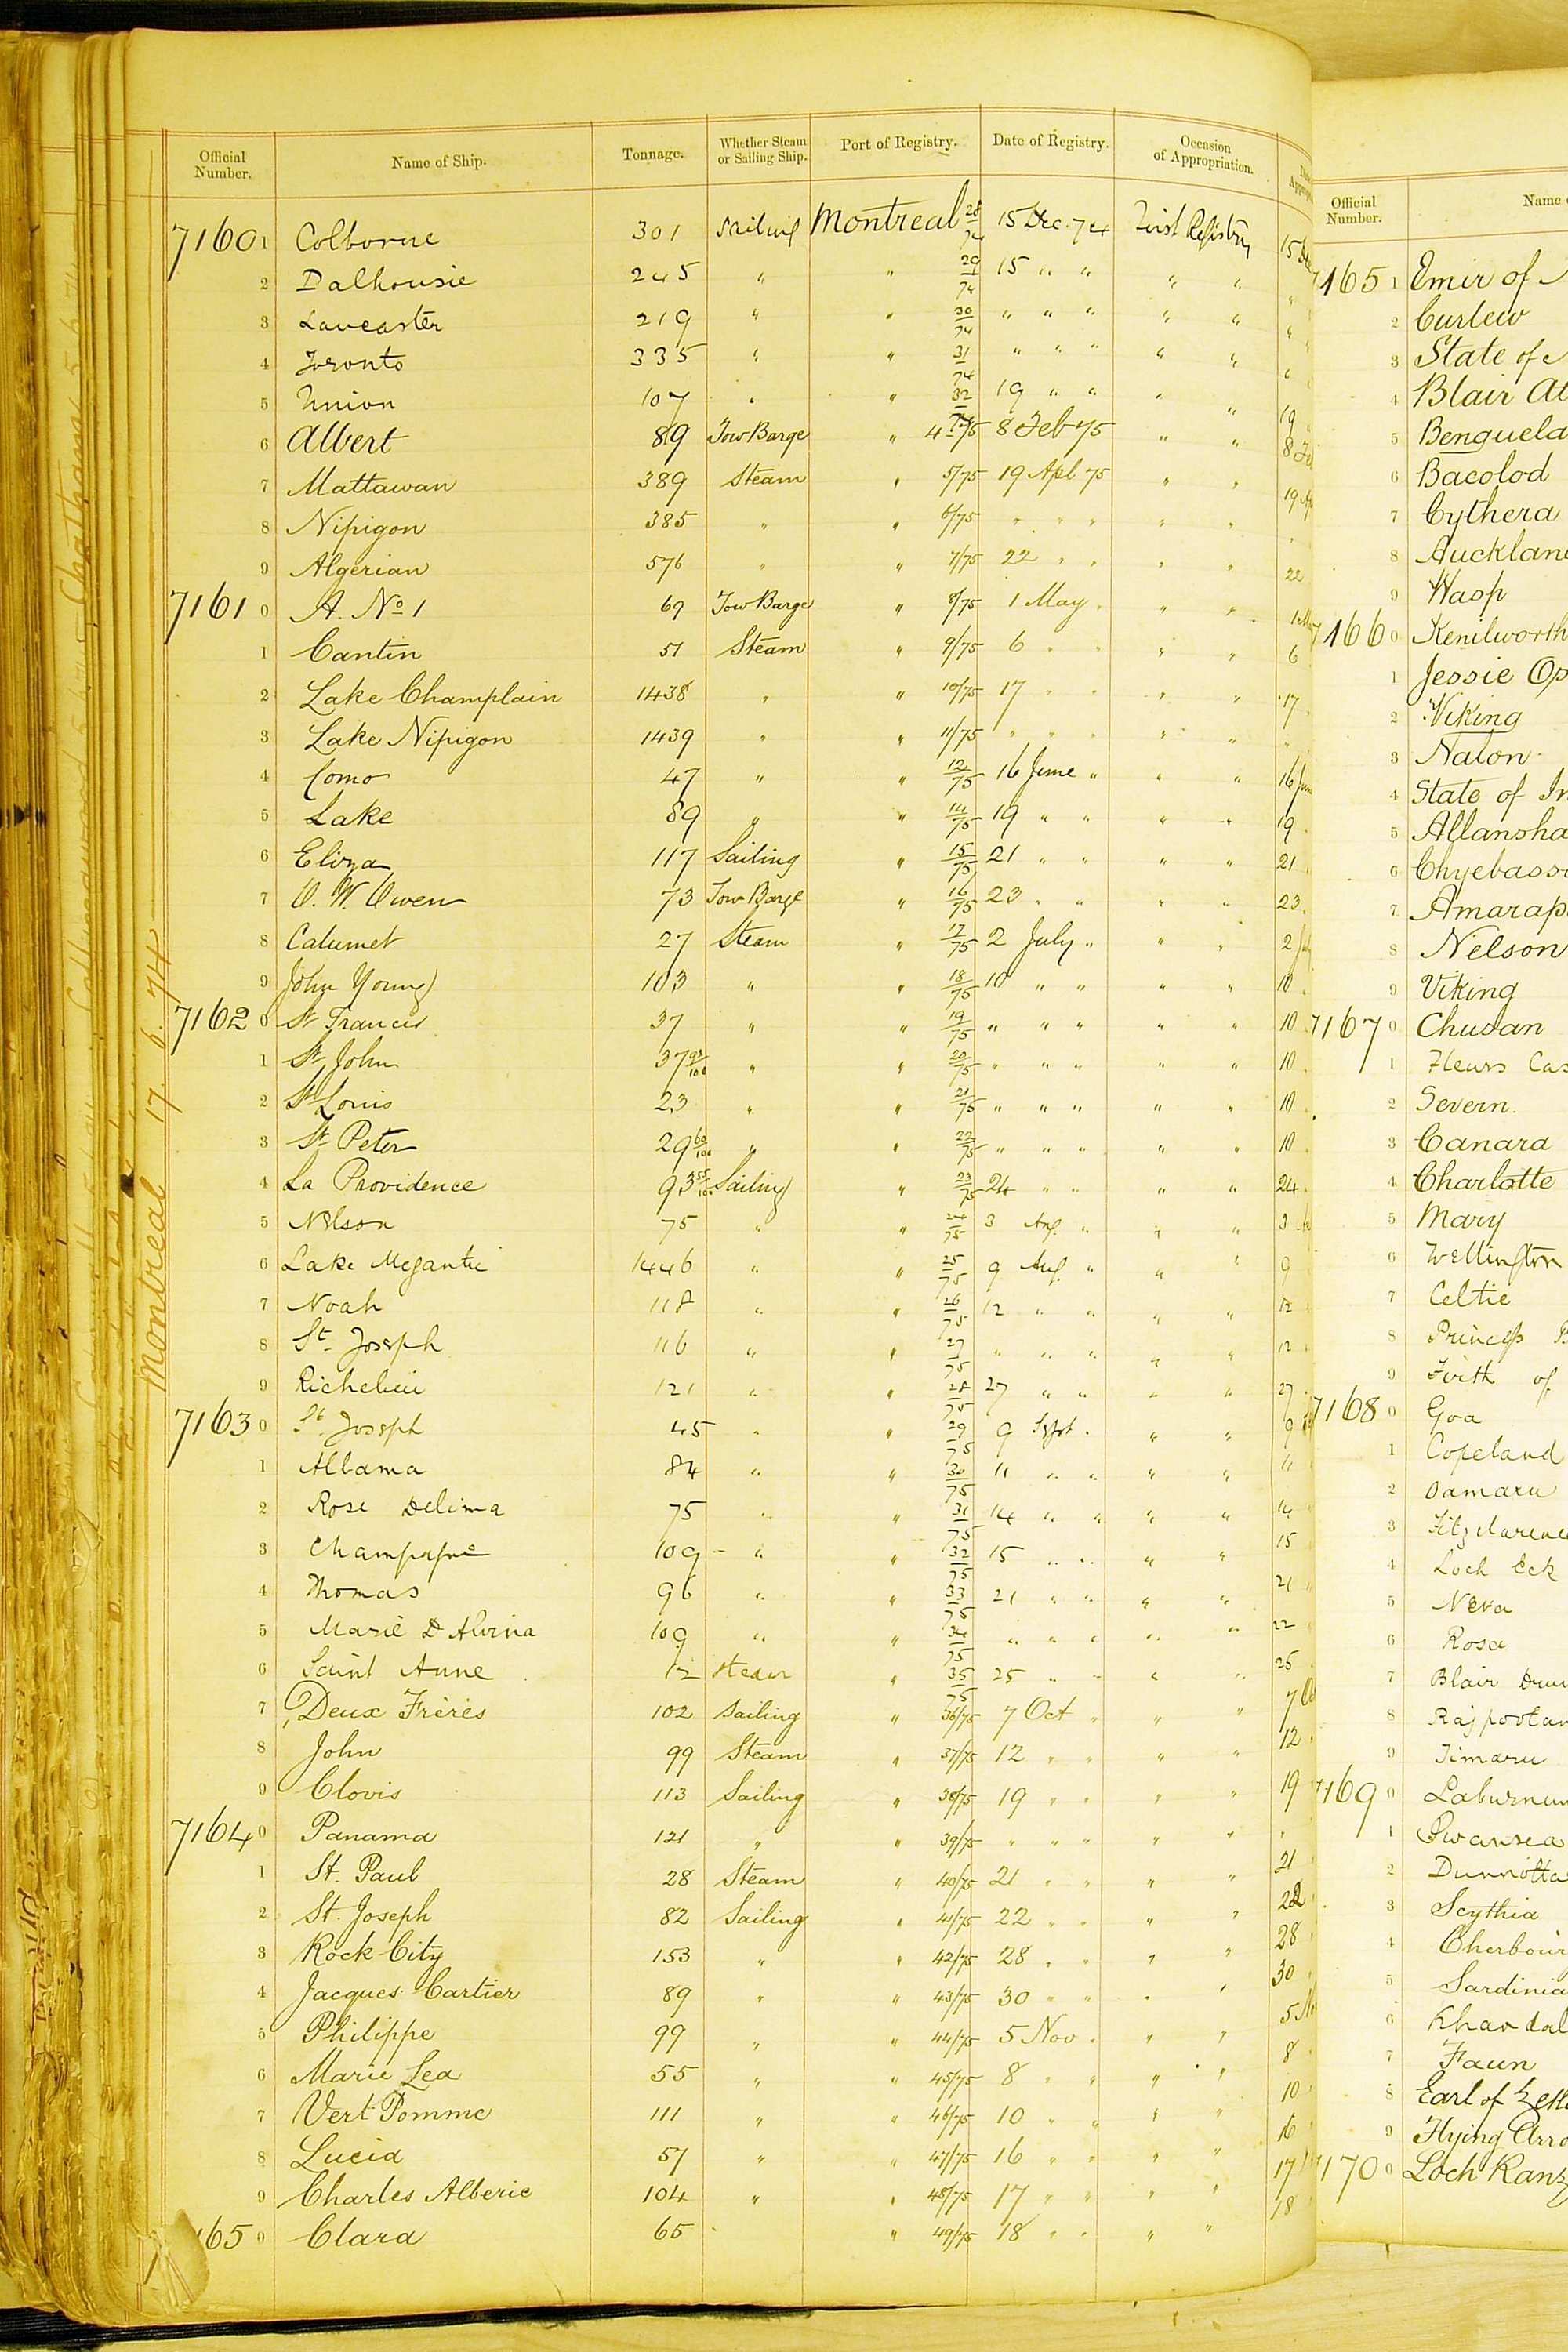 Official Number. Name of Ship. Tonnage. Whether Steam or Sailing Ship. Port of Registry. Date of Registry. Occasion of Appropriation.
71601 Colborne 301 Sailing Montreal 28/74 15 Dec. 74 First Registry 15 De
2 Dalhousie 245 " " 29/74 15 " " " " "
3 Lancaster 219 " " 30/74 " " " " " "
4 Toronto 335 " " 31/74 " " " " " "
5 Union 107 " " 32/74 19 " " " " 19
6 Albert 89 Tow Barge " 4/75 8 Feb 75 " " 8 Fe
7 Mattawan 389 Steam " 5/75 19 Apl 75 " " 19 Ap
8 Nipigon 385 " " 6/75 " " " " " "
9 Algerian 576 " " 7/75 22 " " " " 22
71610 A. No 1 69 Tow Barge " 8/75 1 May " " " 1 Ma
1 Cantin 51 Steam " 9/75 6 " " " " 6
2 Lake Champlain 1438 " " 10/75 17 " " " " 17
3 Lake Nipigon 1439 " " 11/75 " " " " " "
4 Como 47 " " 12/75 16 June " " " 16 Jun
5 Lake 89 " " 14/75 19 " " " " 19
6 Eliza 117 Sailing " 15/75 21 " " " " 21
7 O. W. Owen 73 Tow Barge " 16/75 23 " " " " 23
8 Calumet 27 Steam " 17/75 2 July " " " 2 July
9 John Young 103 " " 18/75 10 " " " " 10
71620 St Francis 37 " " 19/75 " " " " " 10
1 St John 37 92/100 " " 20/75 " " " " " 10
2 St Louis 23 " " 21/75 " " " " " 10
3 St Peter 29 60/100 " " 22/75 " " " " " 10
4 La Providence 93 55/100 Sailing " 23/75 24 " " " " 24
5 Nelson 75 " " 24/75 3 Aug. " " " 3 A
6 Lake Megantic 1446 " " 25/75 9 Aug. " " " 9
7 Noah 118 " " 26/75 12 " " " " 12
8 St. Joseph 116 " " 27/75 " " " " " 12
9 Richelieu 121 " " 28/75 27 " " " " 27
71630 St Joseph 45 " " 29/75 9 Sept. " " 9
1 Albama 84 " " 30/75 11 " " " " 11
2 Rose Delima 75 " " 31/75 14 " " " " 14
3 Champagne 109 " " 32/75 15 " " " " 15
4 Thomas 96 " " 33/75 21 " " " " 21
5 Marie D Alvina 109 " " 34/75 " " " " " 22
6 Saint Anne 12 Steam " 35/75 25 " " " " 25
7 Deux Frères 102 Sailing " 36/75 7 Oct " " " 7 Oc
8 John 99 Steam " 37/75 12 " " " " 12
9 Clovis 113 Sailing " 38/75 19 " " " " 19
71640 Panama 121 " " 39/75 " " " " " "
1 St. Paul 28 Steam " 40/75 21 " " " " 21
2 St. Joseph 82 Sailing " 41/75 22 " " " " 22
3 Rock City 153 " " 42/75 28 " " " " 28
4 Jacques Cartier 89 " " 43/75 30 " " " " 30
5 Philippe 99 " " 44/75 5 Nov. " " 5 No
6 Marie Lea 55 " " 45/75 8 " " " " 8
7 Vert Pomme 111 " " 46/75 10 " " " " 10
8 Lucia 57 " " 47/75 16 " " " " 16
9 Charles Alberic 104 " " 48/75 17 " " " " 17
650 Clara 65 " " 49/75 18 " " " " 18
Montreal 17. 6. 74
Official Number. Name
7165 1 Emir of
2 Curlew
3 State of
4 Blair At
5 Benguela
6 Bacolod
7 Cythera
8 Aucklan
9 Wasp
7166 0 Kenilworth
1 Jessie Os
2 Viking
3 Nalon
4 State of In
5 Allansha
6 Chyebass
7 Amarap
8 Nelson
9 Viking
7167 0 Chusan
1 Fleurs Cas
2 Severn.
3 Canara
4 Charlotte
5 Mary
6 Wellington
7 Celtic
8 Princess B
9 Firth of
7168 0 Goa
1 Copeland
2 Oamaru
3 Fitzclarence
4 Loch Eck
5 Neva
6 Rosa
7 Blair Drum
8 Rajpootan
9 Timaru
7169 0 Laburnum
1 Swansea
2 Dunnotta
3 Scythia
4 Cherbour
5 Sardinia
6 Khandal
7 Faun
8 Earl of Zetl
9 Flying Arro
7170 0 Loch Ranz